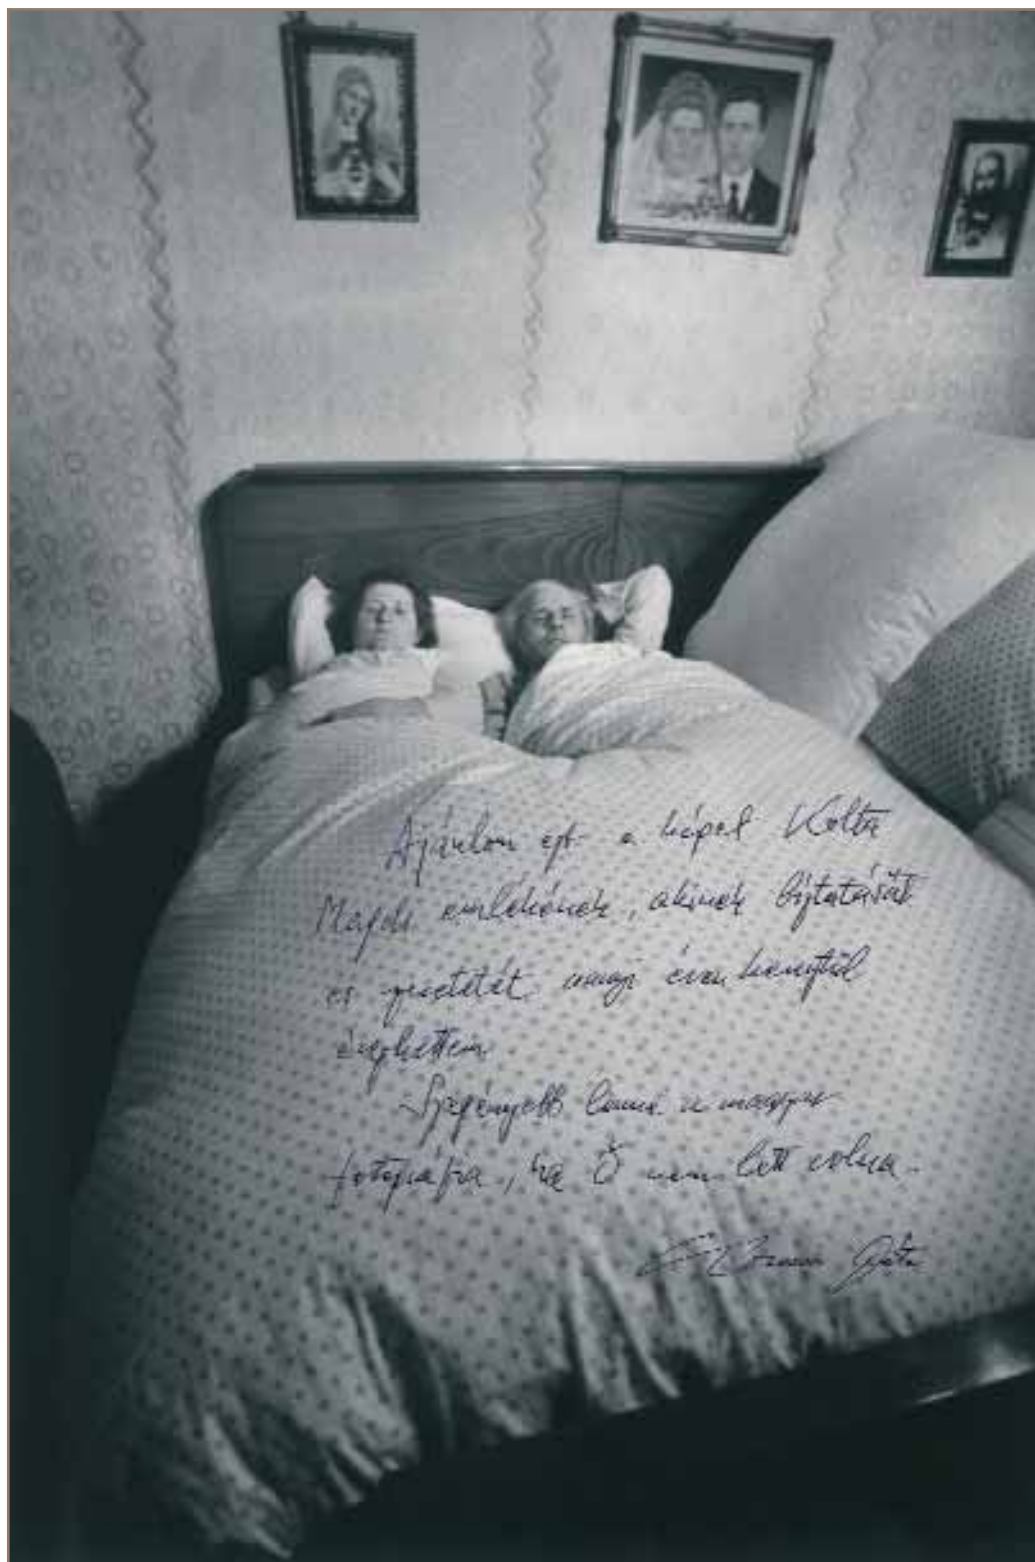 Ajánlom ezt a képet Kolta
Magda emlékének, akinek biztatását
és szeretetét annyi éven keresztül
élvezhettem
Szegényebb lenne a magyar
fotográfia, ha Ő nem lett volna.